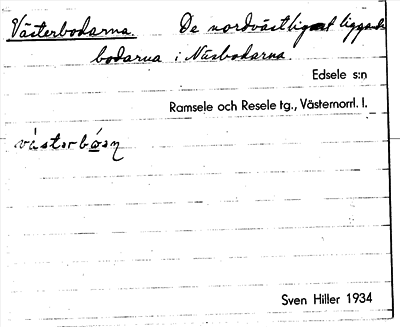 Västerbodarna. De nordvästligast liggande
bodarna i Näsbodarna.
Edsele s:n
Ramsele och Resele tg., Västernorrl. l.
Sven Hiller 1934